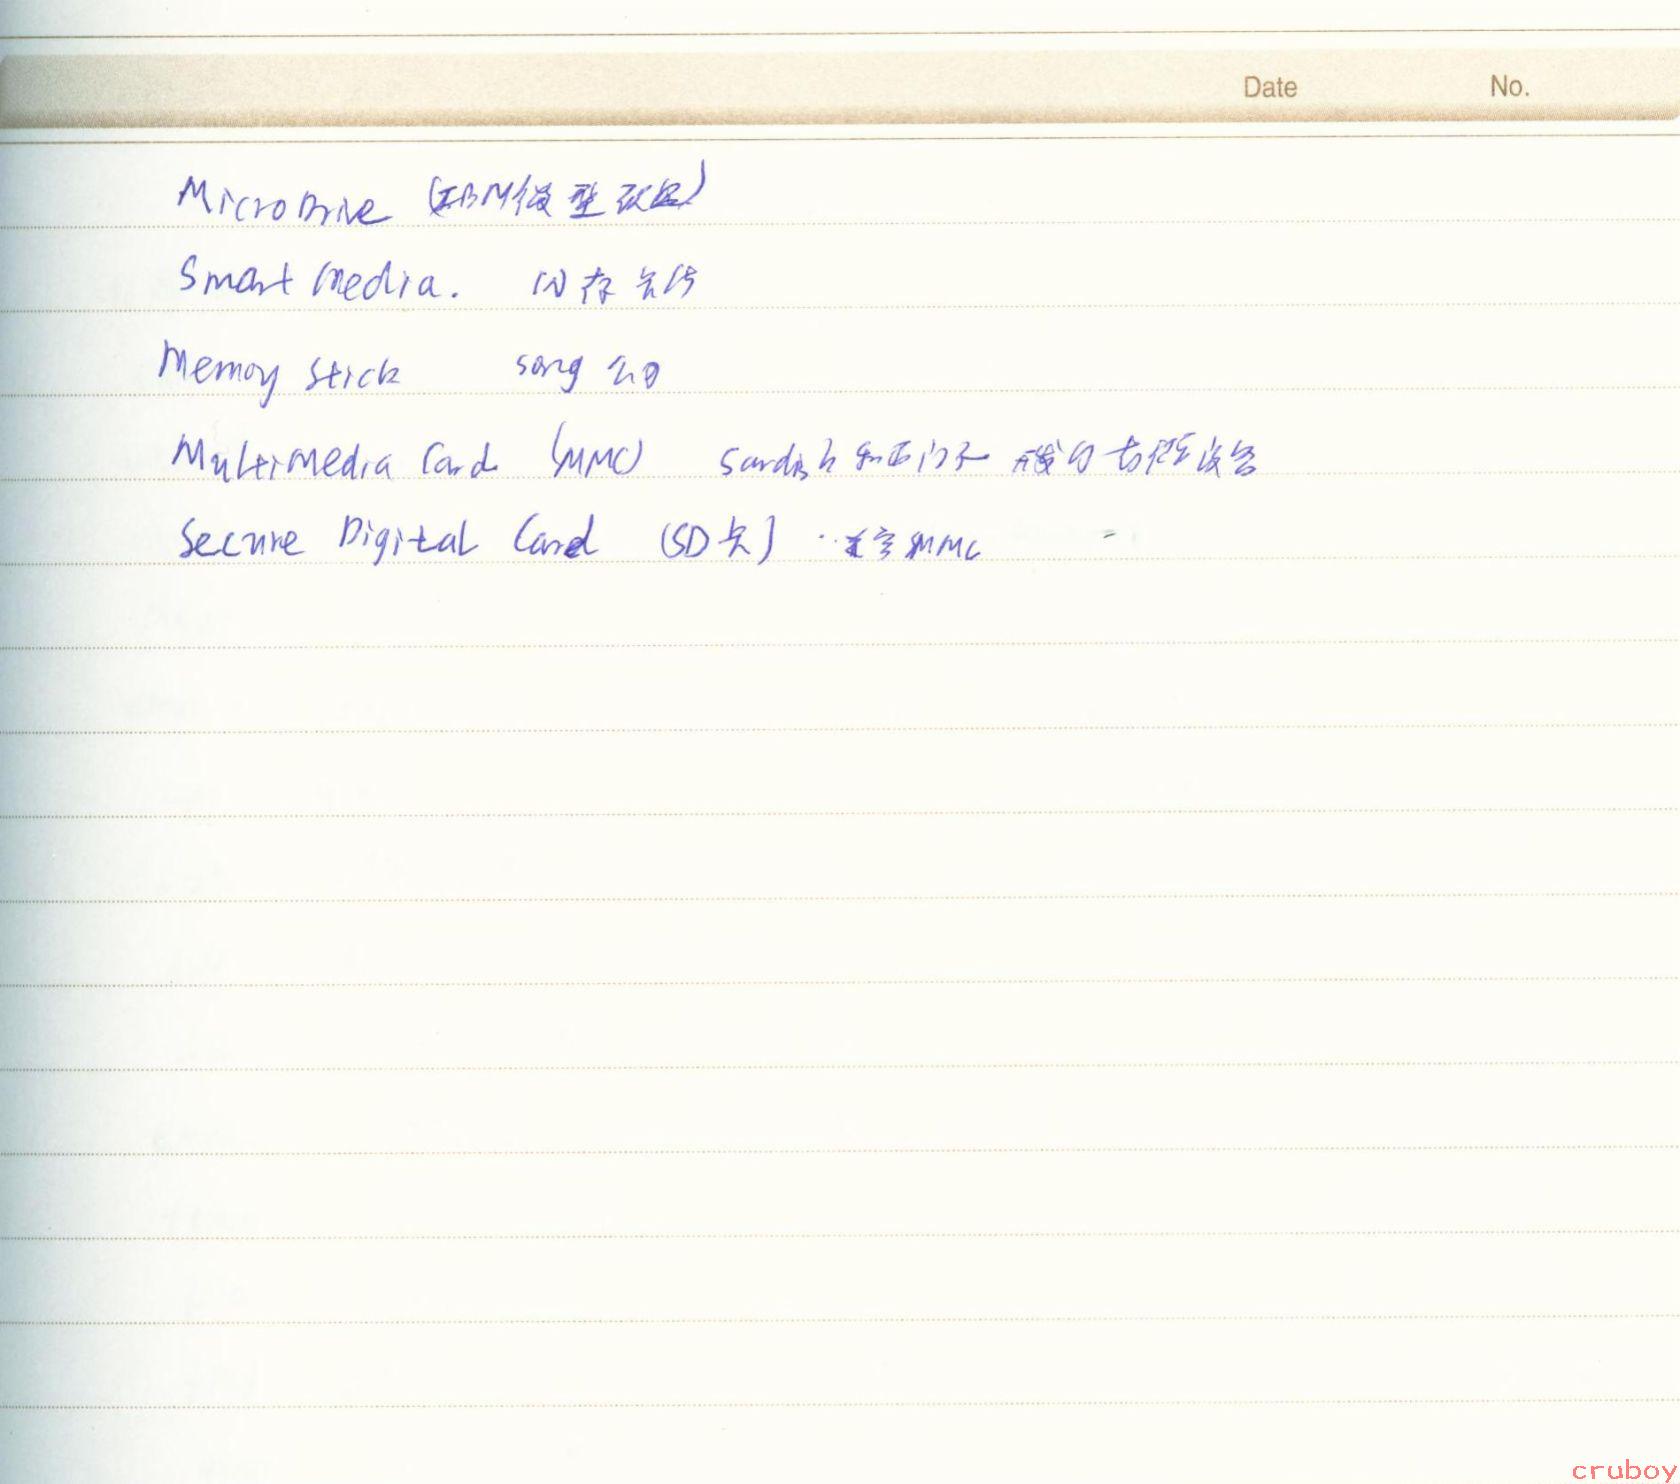 Date No.
MicroDrive (IBM微型硬盘)
Smart Media. 闪存卡
Memoy Stick sony 公司
Multimedia Card (MMC) Sandisk 和西门子 的 存储设备
Secure Digital Card (SD卡) MMC
cruboy